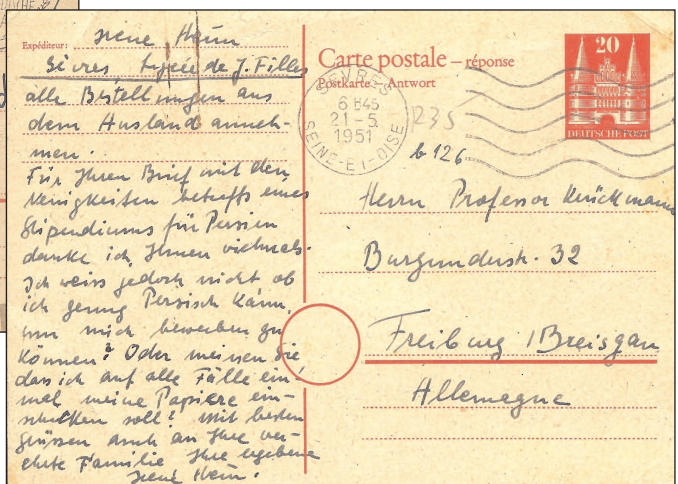 Expéditeur: Irene Heim
Sèvres Lycée de J. Filles
alle Bestellungen aus
dem Ausland anneh-
men.
Für Ihren Brief mit den
Neuigkeiten betreffs eines
Stipendiums für Persien
danke ich Ihnen vielmals.
Ich weiss jedoch nicht ob
ich genug Persisch kann,
um mich bewerben zu
können? Oder meinen Sie,
dass ich auf alle Fälle ein-
mal meine Papiere ein-
schicken soll? Mit besten
Grüssen auch an Ihre ver-
ehrte Familie Ihre ergebene
Irene Heim.
Carte postale – réponse
Postkarte – Antwort
SEVRES
6 H45
21-5
1951
SEINE-ET-OISE
235
b 126
20
DEUTSCHE POST
Herrn Professor Krückmann
Burgunderstr. 32
Freiburg /Breisgau
Allemagne